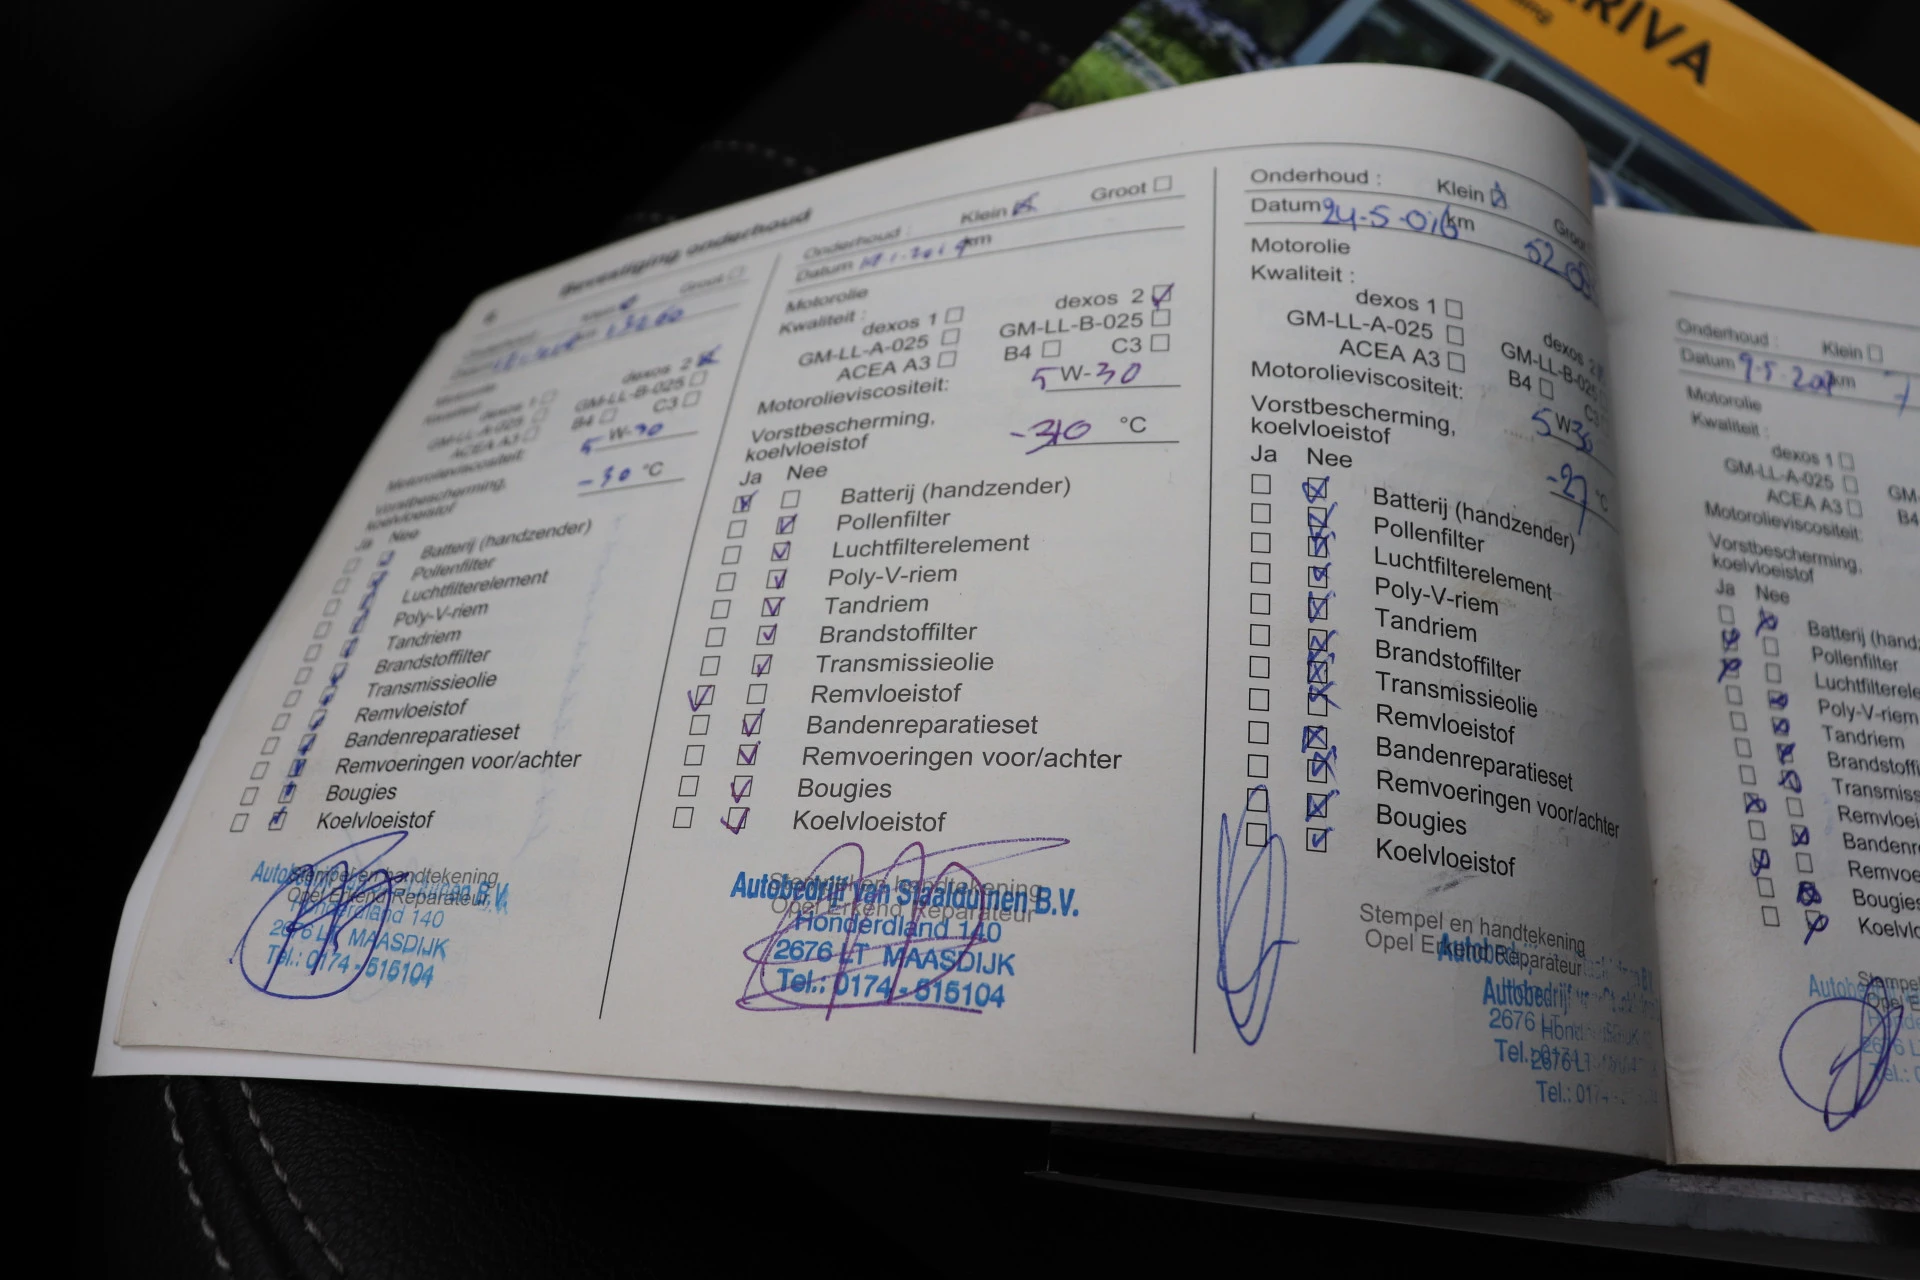 RIVA
6 Bevestiging onderhoud
Onderhoud : Klein Groot
Datum km
Motorolie
Kwaliteit :
dexos 1 dexos 2
GM-LL-A-025 GM-LL-B-025
ACEA A3 B4 C3
Motorolieviscositeit: 5 W-30
Vorstbescherming,
koelvloeistof -30 °C
Ja Nee
Batterij (handzender)
Pollenfilter
Luchtfilterelement
Poly-V-riem
Tandriem
Brandstoffilter
Transmissieolie
Remvloeistof
Bandenreparatieset
Remvoeringen voor/achter
Bougies
Koelvloeistof
Stempel en handtekening
Opel Erkend Reparateur
B.V.
Honderdland 140
2676 LT MAASDIJK
Tel.: 0174 - 515104
Onderhoud : Klein Groot
Datum km
Motorolie
Kwaliteit :
dexos 1 dexos 2
GM-LL-A-025 GM-LL-B-025
ACEA A3 B4 C3
Motorolieviscositeit: 5 W-30
Vorstbescherming,
koelvloeistof °C
Ja Nee
Batterij (handzender)
Pollenfilter
Luchtfilterelement
Poly-V-riem
Tandriem
Brandstoffilter
Transmissieolie
Remvloeistof
Bandenreparatieset
Remvoeringen voor/achter
Bougies
Koelvloeistof
Stempel en handtekening
Opel Erkend Reparateur
Autobedrijf van Staalduinen B.V.
Honderdland 140
2676 LT MAASDIJK
Tel.: 0174 - 515104
Onderhoud : Klein Groot
Datum km
Motorolie
Kwaliteit :
dexos 1 dexos 2
GM-LL-A-025 GM-LL-B-025
ACEA A3 B4 C3
Motorolieviscositeit: 5 W 30
Vorstbescherming,
koelvloeistof -27 °C
Ja Nee
Batterij (handzender)
Pollenfilter
Luchtfilterelement
Poly-V-riem
Tandriem
Brandstoffilter
Transmissieolie
Remvloeistof
Bandenreparatieset
Remvoeringen voor/achter
Bougies
Koelvloeistof
Stempel en handtekening
Opel Erkend Reparateur
Autobedrijf
2676
Tel.
Tel.: 0174
Onderhoud : Klein
Datum 9-5-2017 km 7
Motorolie
Kwaliteit :
dexos 1
GM-LL-A-025 GM-
ACEA A3 B4
Motorolieviscositeit:
Vorstbescherming,
koelvloeistof
Ja Nee
Batterij (handz
Pollenfilter
Luchtfilterele
Poly-V-riem
Tandriem
Brandstoffi
Transmiss
Remvloei
Bandenr
Remvoe
Bougies
Koelvlo
Stempel
Opel E